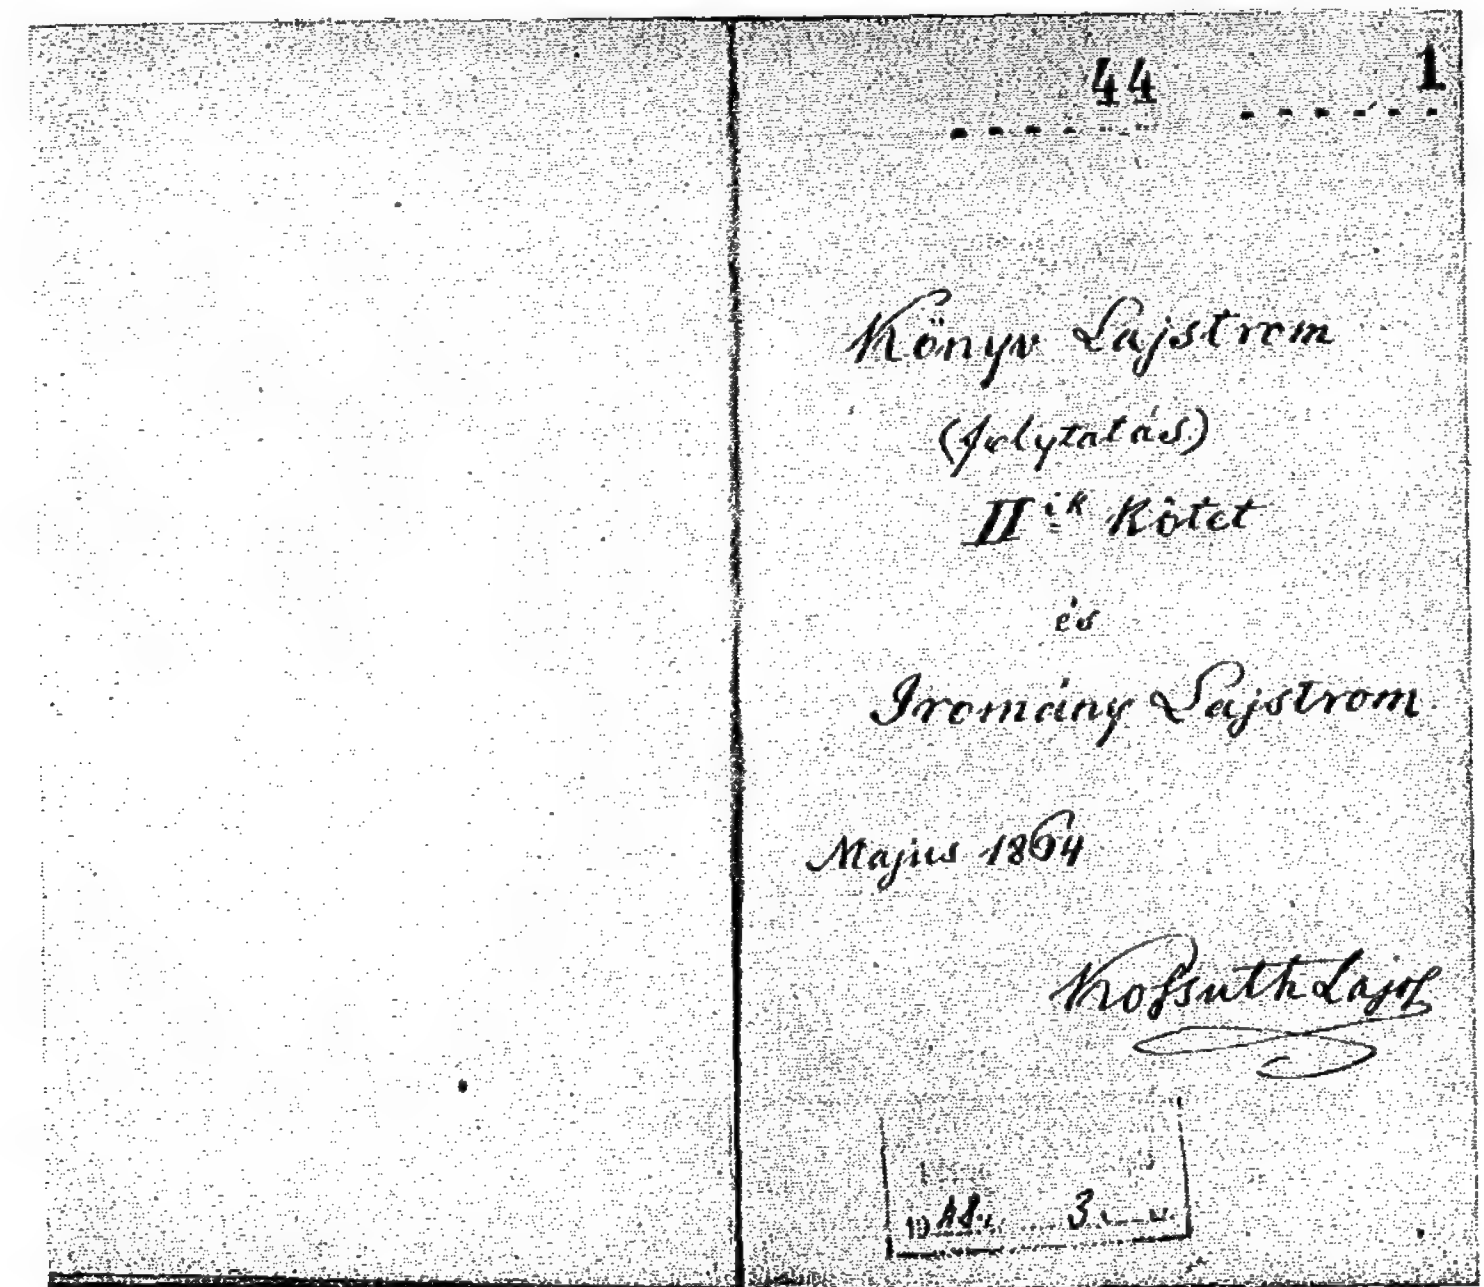 44 1
Könyv Lajstrom
(folytatás)
II.ik Kötet
és
Iromány Lajstrom
Majus 1864
Kossuth Lajos
19 48. 3.